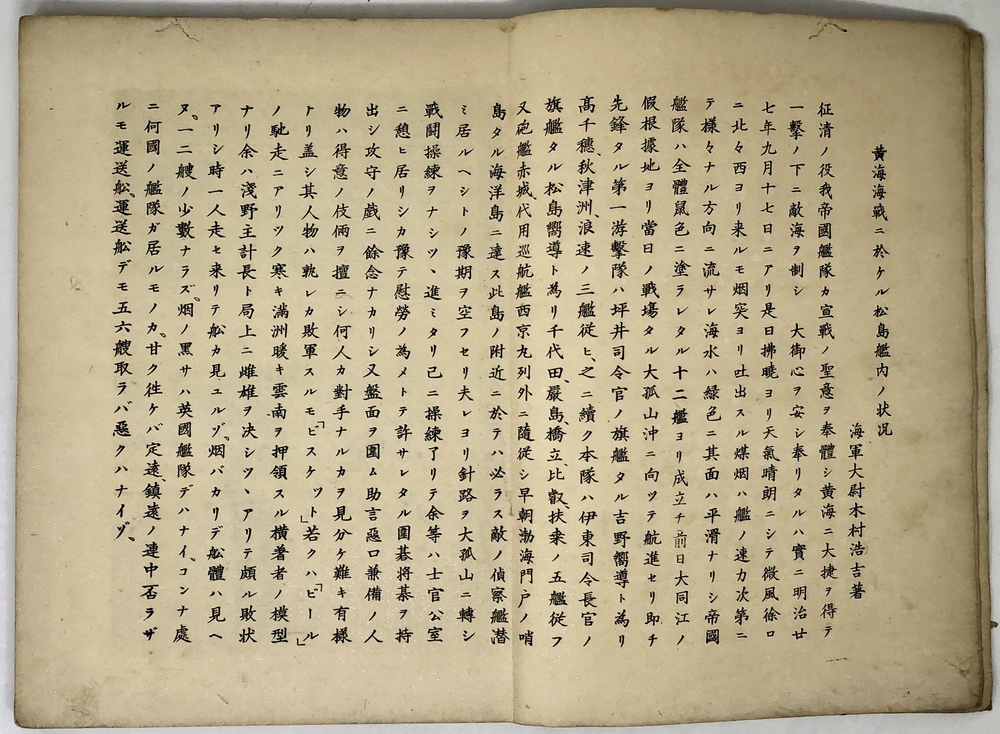 黄海海戰ニ於ケル松島艦内ノ状况
海軍大尉木村浩吉著
征清ノ役我帝國艦隊カ宣戰ノ聖意ヲ奉體シ黄海ニ大捷ヲ得テ
一擊ノ下ニ敵海ヲ制シ　大御心ヲ安シ奉リタルハ實ニ明治廿
七年九月十七日ニアリ是日拂曉ヨリ天氣晴朗ニシテ微風徐ロ
ニ北々西ヨリ来ルモ烟突ヨリ吐出スル煤烟ハ艦ノ速力次第ニ
テ様々ナル方向ニ流サレ海水ハ緑色ニ其面ハ平滑ナリシ帝國
艦隊ハ全體鼠色ニ塗ラレタル十二艦ヨリ成立チ前日大同江ノ
假根據地ヨリ當日ノ戰塲タル大孤山沖ニ向ツテ航進セリ即チ
先鋒タル第一游擊隊ハ坪井司令官ノ旗艦タル吉野嚮導ト為リ
髙千穗、秋津洲、浪速ノ三艦従ヒ、之ニ續ク本隊ハ伊東司令長官ノ
旗艦タル松島嚮導ト為リ千代田、嚴島、橋立、比叡、扶桒ノ五艦従フ
又砲艦赤城、代用巡航艦西京丸列外ニ隨従シ早朝渤海門戸ノ哨
島タル海洋島ニ達ス此島ノ附近ニ於テハ必ラス敵ノ偵察艦潜
ミ居ルヘシトノ豫期ヲ空フセリ夫レヨリ針路ヲ大孤山ニ轉シ
戰鬪操練ヲナシツヽ進ミタリ已ニ操練了リテ余等ハ士官公室
ニ憩ヒ居リシカ豫テ慰勞ノ為メトテ許サレタル圍碁將棊ヲ持
出シ攻守ノ戯ニ餘念ナカリシ又盤面ヲ圍ム助言惡口兼備ノ人
物ハ得意ノ伎倆ヲ擅ニシ何人カ對手ナルカヲ見分ケ難キ有様
トリ盖シ其人物ハ孰レカ敗軍スルモ「ビスケツト」若クハ「ビール」
ノ馳走ニアリツク寒キ滿洲暖キ雲南ヲ押領スル横着者ノ模型
ナリ余ハ淺野主計長ト局上ニ雌雄ヲ决シツヽアリテ頗ル敗状
アリシ時一人走セ来リテ舩カ見ユルゾ。烟バカリデ舩體ハ見ヘ
ヌ。一二艘ノ少數ナラズ。烟ノ黒サハ英國艦隊デハナイ。コンナ處
ニ何國ノ艦隊ガ居ルモノカ。甘ク徃ケバ定遠、鎮遠ノ連中否ラザ
ルモ運送舩、運送舩デモ五六艘取ラバ惡クハナイゾ。